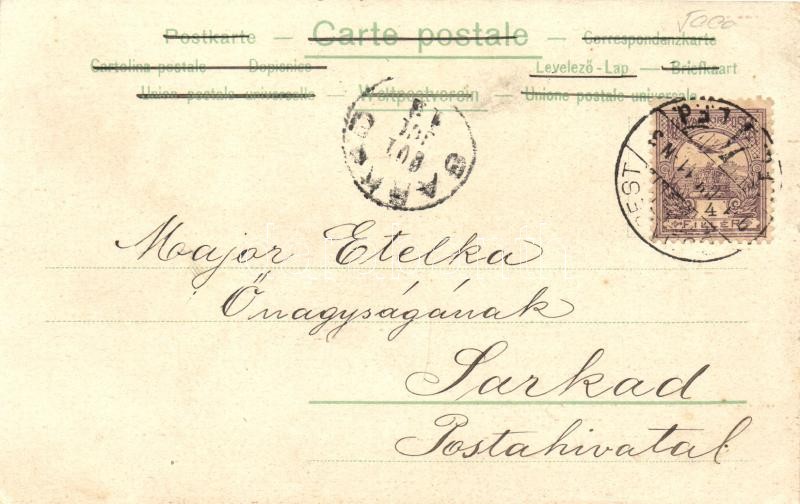 5000
Postkarte — Carte postale — Correspondenzkarte
Cartolina postale — Dopisnice — Levelező-Lap — Briefkaart
Union postale universelle — Weltpostverein — Unione postale universale
SARKAD
901
4
FILLÉR
Major Etelka
Őnagyságának
Sarkad
Postahivatal